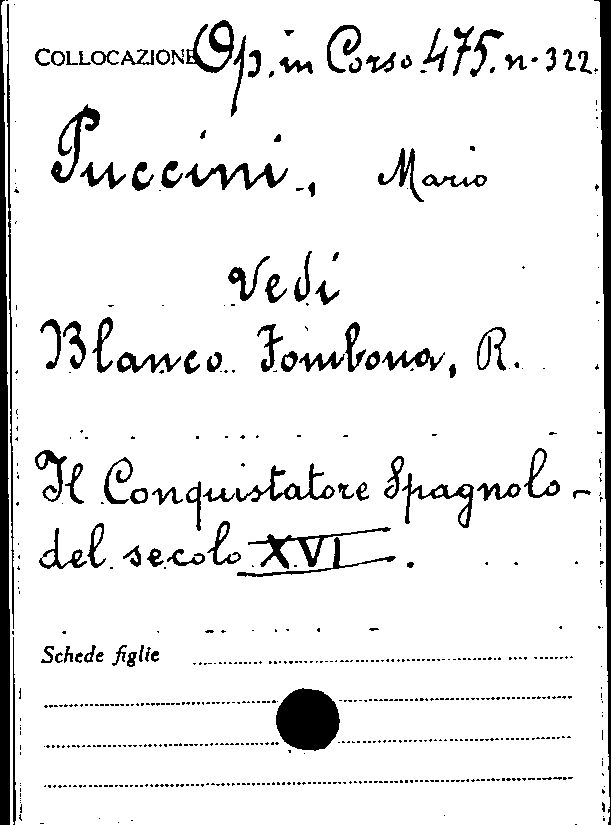 COLLOCAZIONE Op. in Corso 475. n. 322.
Puccini, Mario
Vedi
Blanco Fombona, R.
Il Conquistatore Spagnolo -
del secolo XVI.
Schede figlie